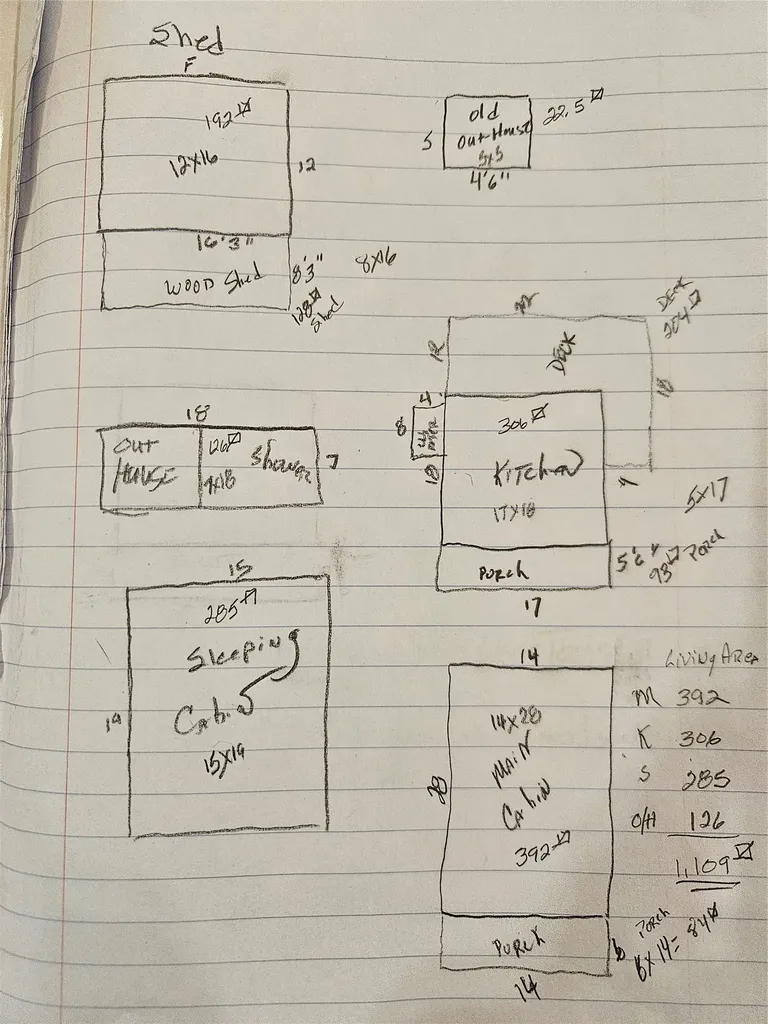 Shed
F
192▱
12x16
12
16'3"
Wood Shed
8'3"
8x16
128▱
Shed
Old
Out-House
5x5
5
4'6"
22.5▱
Deck
204▱
12
Deck
18
4
8
306▱
Kitchen
17x18
18
5x17
Porch
5'6"
93▱ Porch
17
18
Out
House
126▱
7x18
Shower
7
15
285▱
Sleeping
Cabin
15x19
19
14
14x28
Main
Cabin
392▱
28
Porch
6
14
Living Area
M 392
K 306
S 285
O/H 126
1,109▱
Porch
6x14= 84▱